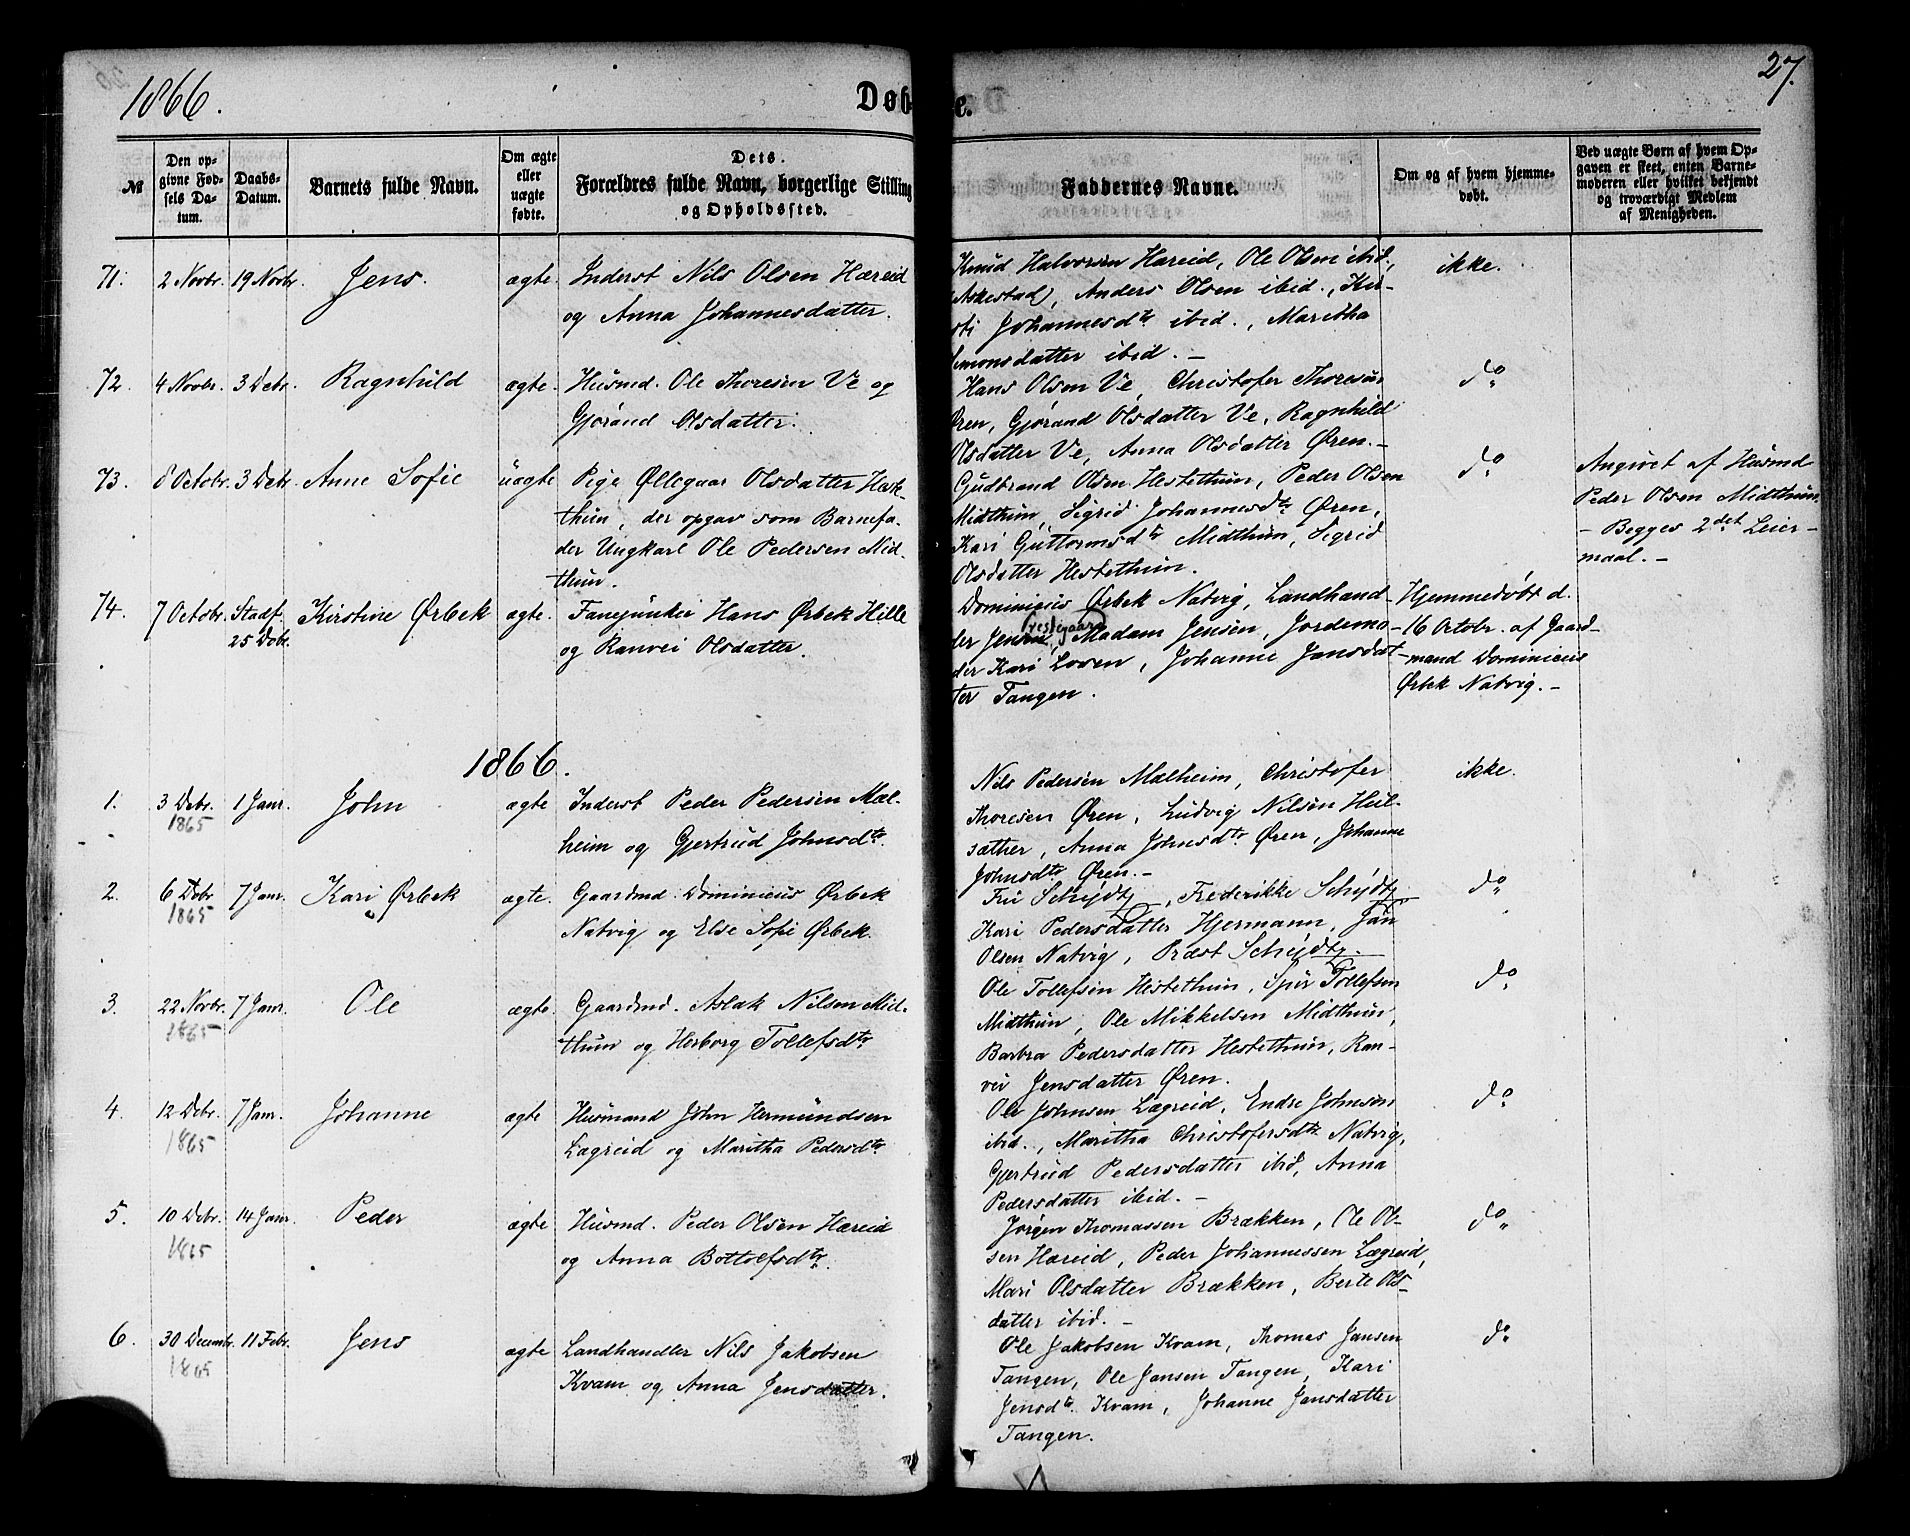 1866.
Døbte.
27.
№
Den op-
givne Fød-
sels Da-
tum.
Daabs-
Datum.
Barnets fulde Navn.
Om ægte
eller
uægte
fødte.
Dets
Forældres fulde Navn, borgerlige Stilling
og Opholdssted.
Faddernes Navne.
Om og af hvem hjemme-
døbt.
Ved uægte Børn af hvem Op-
gaven er skeet, enten Barne-
moderen eller hvilket bekjendt
og troværdigt Medlem
af Menigheden.
71. 2 Novbr. 19 Novbr. Jens. ægte. Inderst Nils Olsen Hæreid
og Anna Johannesdatter.
Knud Halvorsen Hæreid, Ole Olsen ibid.,
Askestad, Anders Olsen ibid., Kir-
sti Johannesdtr ibid., Maritha
Simonsdatter ibid. –
ikke.
72. 4 Novbr. 3 Debr. Ragnhild ægte. Husmd. Ole Thoresen Ve og
Gjörand Olsdatter.
Hans Olsen Ve, Christofer Thoresen
Øren, Gjørand Olsdatter Ve, Ragnhild
Olsdatter Ve, Anna Olsdatter Øren. –
do
73. 8 Octobr. 3 Debr. Anne Sofie uægte Pige Øllegaar Olsdatter Heste-
thun, der opgav som Barnefa-
der Ungkarl Ole Pedersen Mid-
thun.
Gudbrand Olsen Hestethun, Peder Olsen
Midthun, Sigrid Johannesdtr Øren,
Kari Guttormsdtr Midthun, Sigrid
Olsdatter Hestethun.
do
Angivet af Husmd
Peder Olsen Midthun.
– Begges 2det Leier-
maal. –
74. 7 Octobr. Stadf. Kirstine Ørbek ægte. Fanejunker Hans Ørbek Hille
25 Debr. og Ranvei Olsdatter.
Dominicus Ørbek Natvig, Landhand-
ler Jensen (Vestgaard), Madam Jensen, Jordemo-
der Kari Loven, Johanne Jansdat-
ter Tangen.
Hjemmedøbt d.
16 Octobr. af Gaard-
mand Dominicus
Ørbek Natvig. –
1866.
1. 3 Debr. 1 Janr. John ægte Inderst Peder Pedersen Mæl-
1865 heim og Gjertrud Johnsdtr.
Nils Pedersen Mælheim, Christofer
Thoresen Øren, Ludvig Nilsen Heil-
sæther, Anna Johnsdtr Øren, Johanne
Johnsdtr Øren. –
ikke.
2. 6 Debr 7 Janr. Kari Ørbek ægte. Gaardmd. Dominicus Ørbek
1865 Natvig og Else Sofie Ørbek.
Fru Schydtz, Frederikke Schydtz
Kari Pedersdatter Hjermann, Jan
Olsen Natvig, Præst Schydtz.
do
3. 22 Novbr. 7 Janr. Ole ægte Gaardmd. Aslak Nilsen Mid-
1865 thun og Herborg Tollefsdtr
Ole Tollefsen Hestethun, Sjur Tollefsen
Midthun, Ole Mikkelsen Midthun,
Barbra Pedersdatter Hestethun, Ran-
vei Jensdatter Øren.
do
4. 12 Debr. 7 Janr. Johanne ægte Husmand John Hermundsen
1865 Lægreid og Maritha Pedersdtr
Ole Johnsen Lægreid, Endre Johnsen
ibid., Maritha Christofersdtr Natvig,
Gjertrud Pedersdatter ibid, Anna
Pedersdatter ibid. –
do
5. 10 Debr. 14 Janr. Peder ægte Husmd. Peder Olsen Hæreid
1865 og Anna Bottolfsdtr.
Jørgen Thomassen Brækken, Ole Ol-
sen Hæreid, Peder Johannessen Lægreid,
Mari Olsdatter Brækken, Berte Ols-
datter ibid. –
do
6. 30 Decembr. 11 Febr. Jens ægte Landhandler Nils Jakobsen
1865 Kvam og Anna Jensdatter.
Ole Jakobsen Kvam, Thomas Jansen
Tangen, Ole Jansen Tangen, Kari
Jensdtr. Kvam, Johanne Jansdatter
Tangen.
do